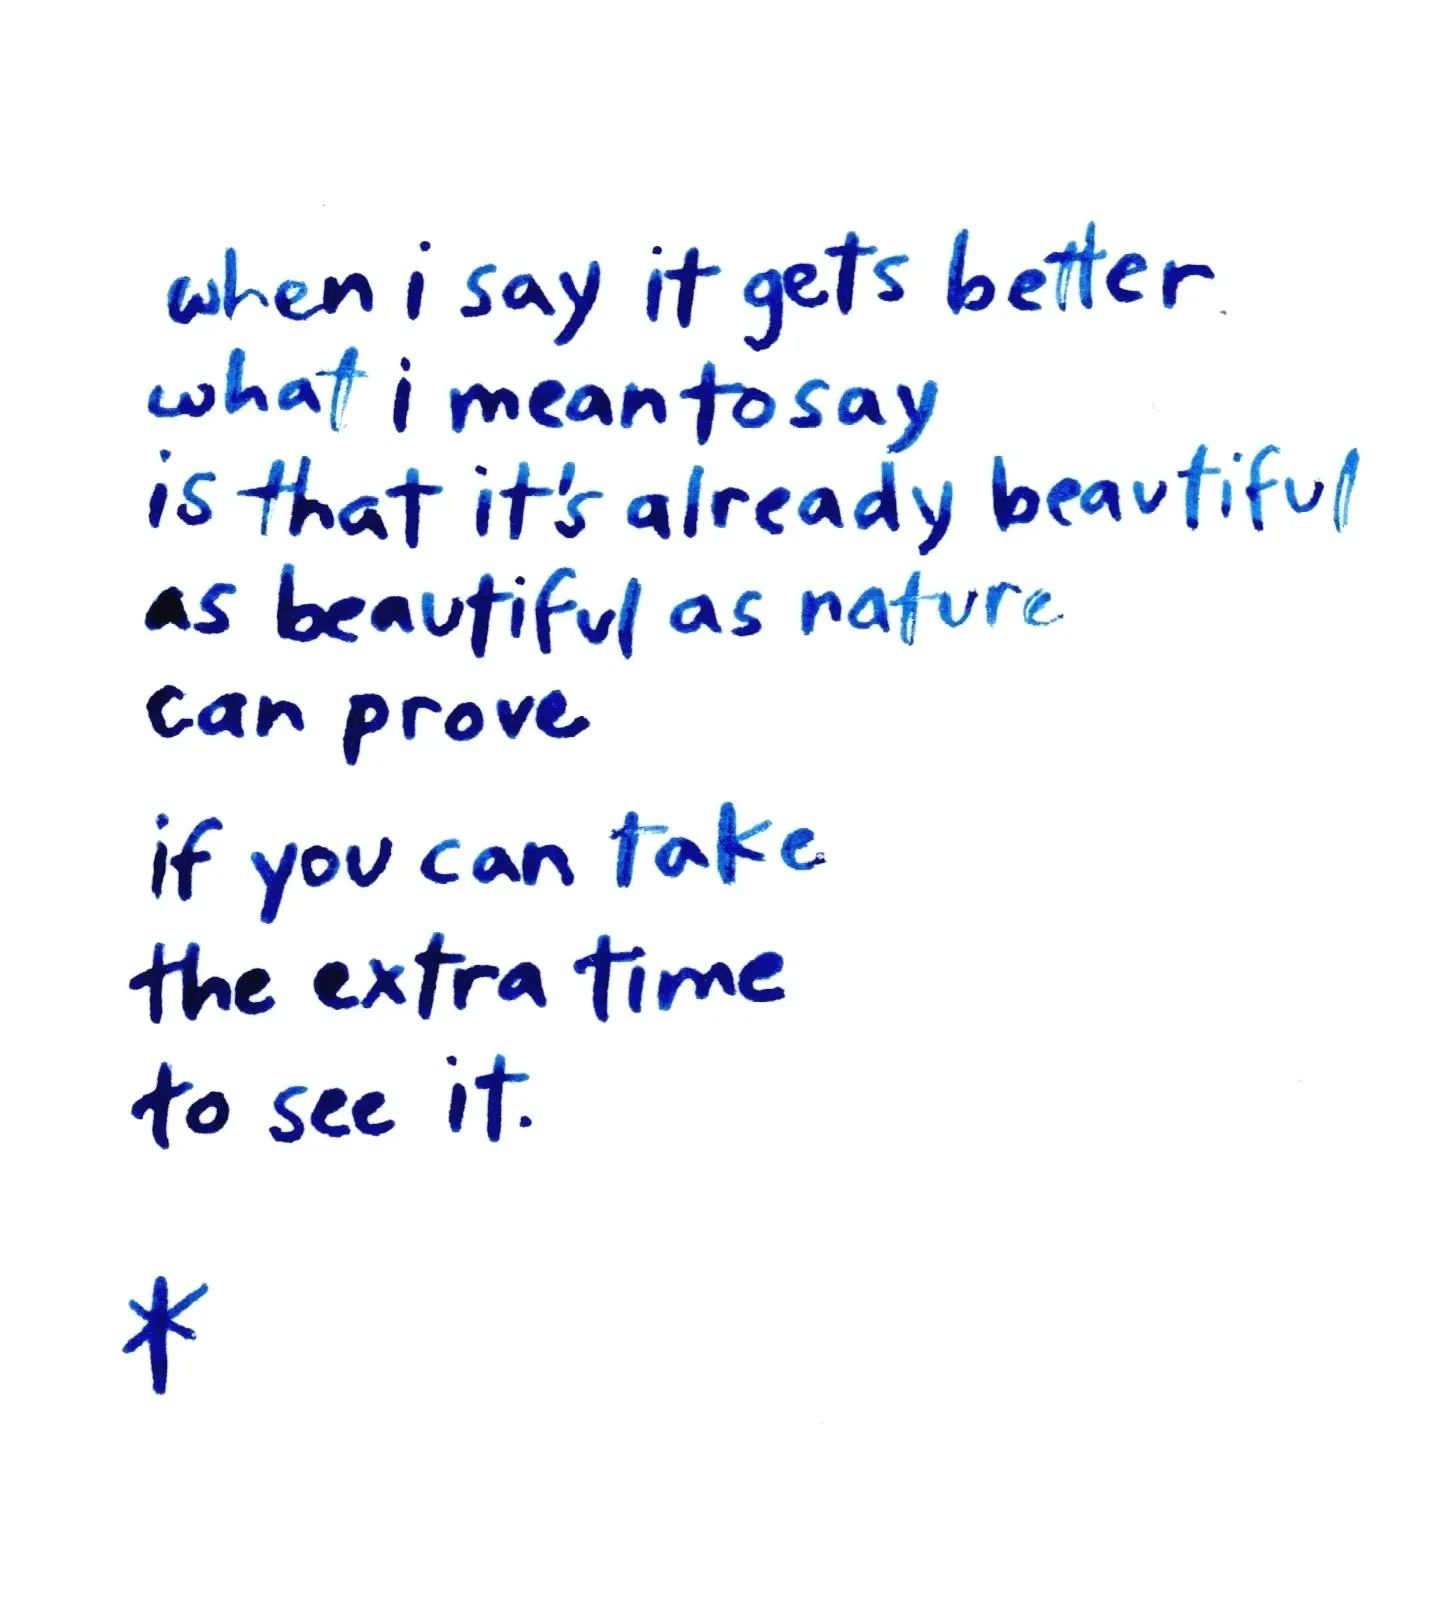 when i say it gets better
what i mean to say
is that it's already beautiful
as beautiful as nature
can prove
if you can take
the extra time
to see it.
*